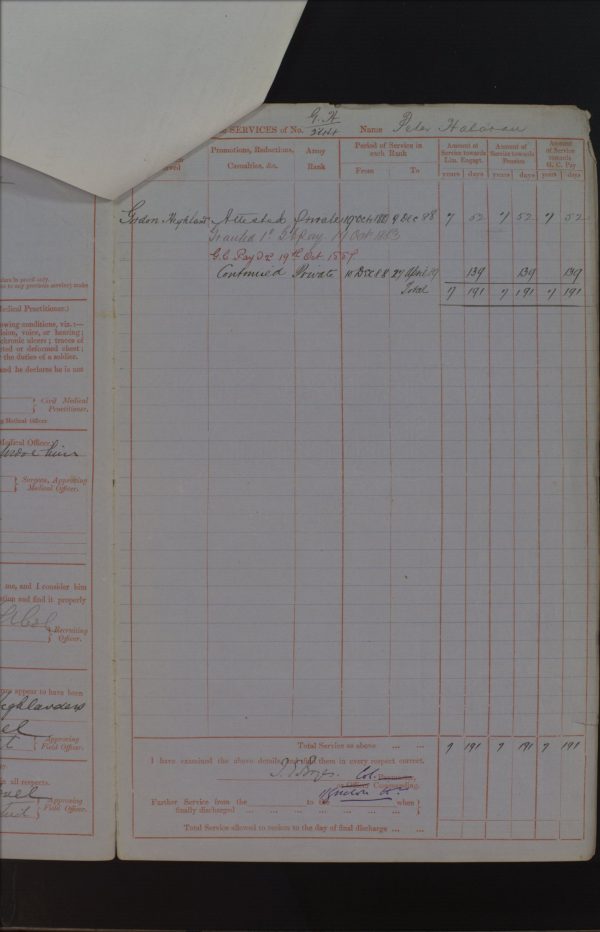 G. H
SERVICES of No. Name Peter
Promotions, Reductions, Casualties, &c.
Army Rank
Period of Service in each Rank
From To
Amount of Service towards Lim. Engagt.
years days
Amount of Service towards Pension
years days
Amount of Service towards G. C. Pay
years days
Gordon Attested Private 19 Oct 9 Dec 88 7 52 7 52 7 52
Granted 1d G.C. Pay 19 Oct 1883
G.C. Pay 19th Oct
Continued Private 10 Dec 88 27 April 139 139 139
Total 7 191 7 191 7 191
Total Service as above ... ... 7 191 7 191 7 191
I have examined the above details, and find them in every respect correct.
Col.
Commanding.
Further Service from the to the when
finally discharged ... ... ... ... ... ...
Total Service allowed to reckon to the day of final discharge ... ...
Medical Practitioner.)
owing conditions, viz.:—
ision, voice, or hearing;
chronic ulcers; traces of
cted or deformed chest;
the duties of a soldier.
and he declares he is not
Civil Medical
Practitioner.
Medical Officer
Medical Officer.
Surgeon, Approving
Medical Officer.
me, and I consider him
ation and find it properly
Recruiting
Officer.
appear to have been
ighlanders
Approving
Field Officer.
in all respects.
Approving
Field Officer.